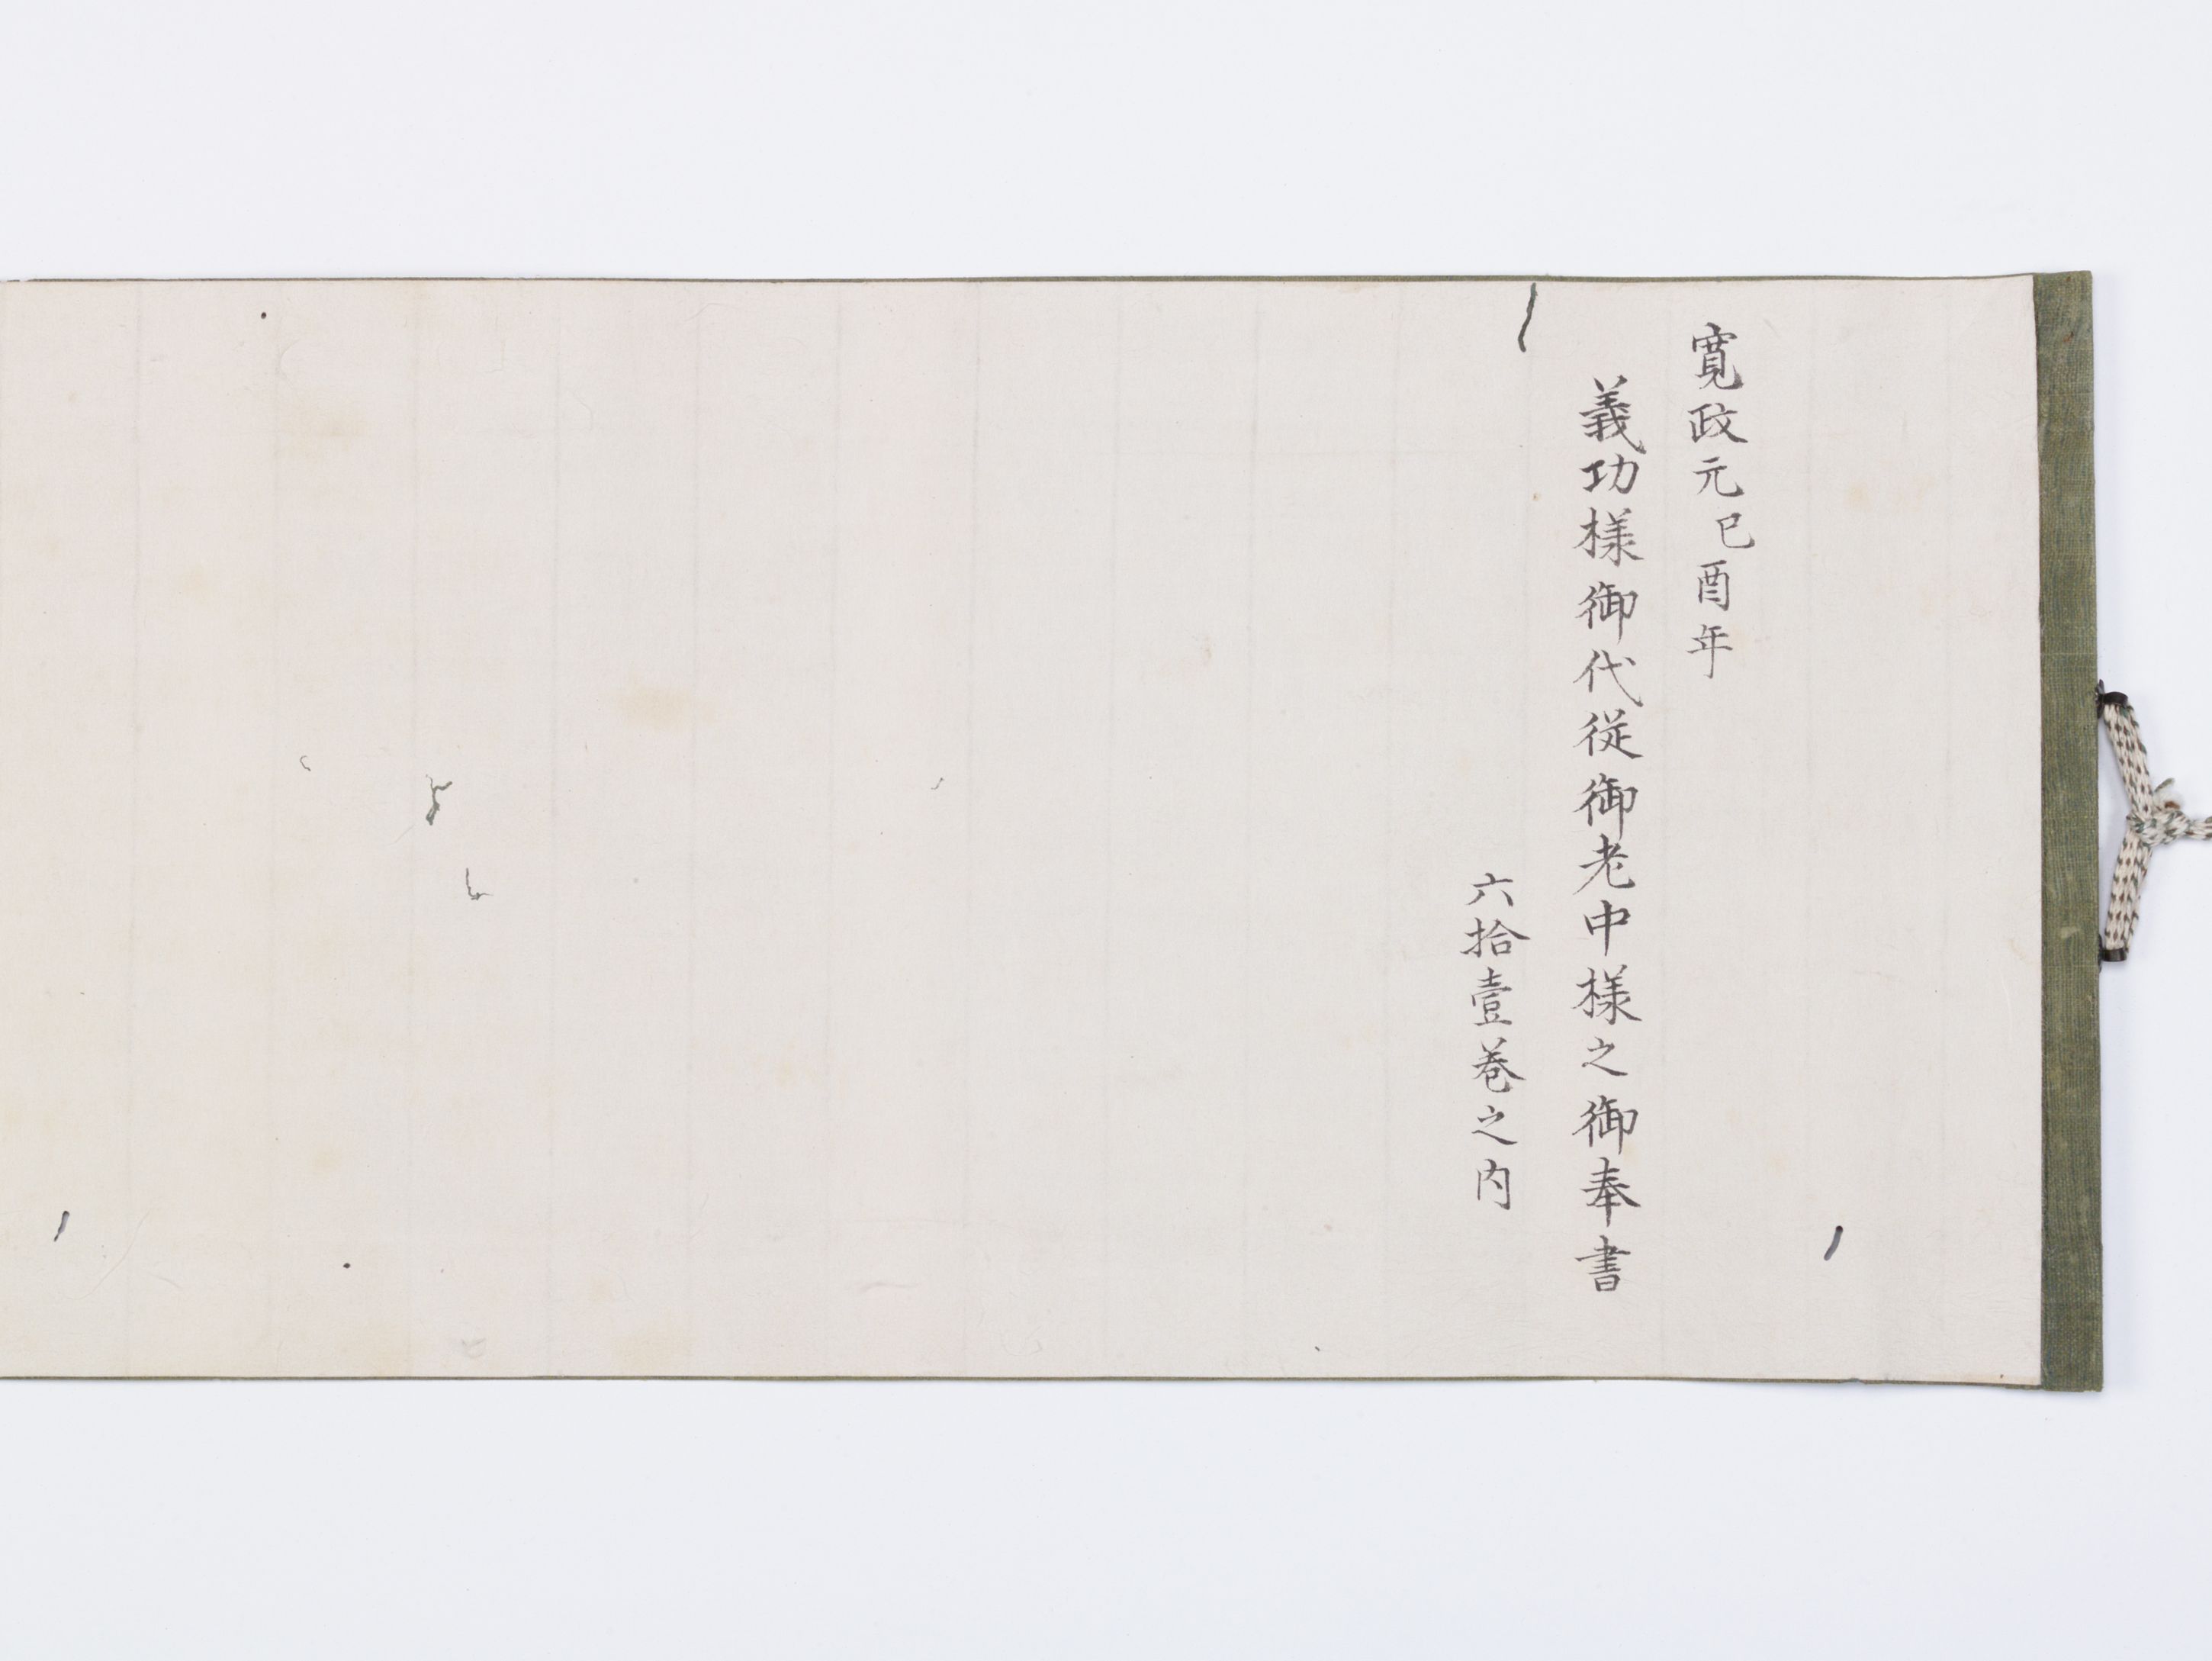 寛政元己酉年
義功様御代従御老中様之御奉書
六拾壹巻之内